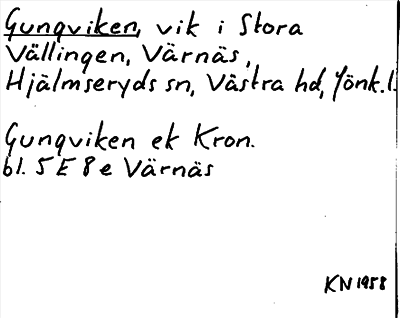 Gunqviken, vik i Stora
Vällingen, Värnäs,
Hjälmseryds sn, Västra hd, Jönk.l.
Gunqviken ek Kron.
bl. 5 E 8 e Värnäs
KN 1958